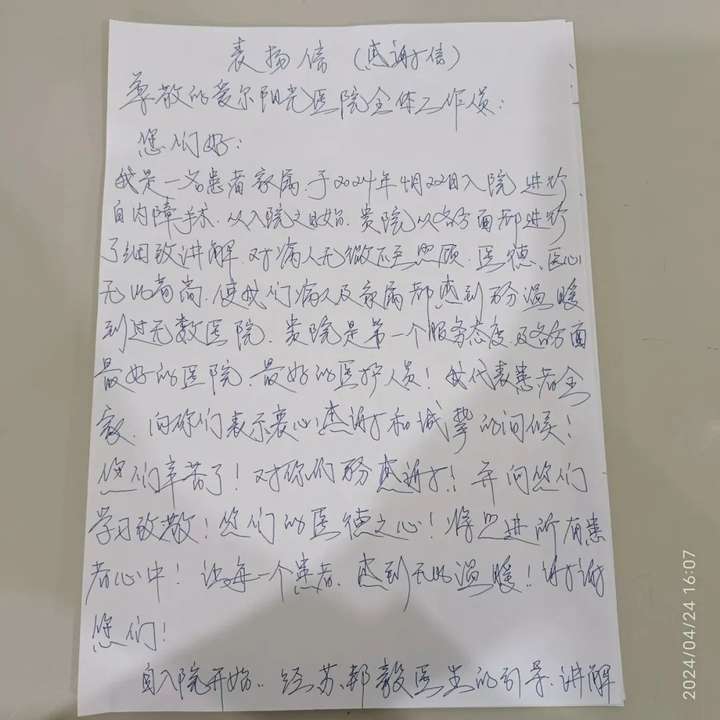 表扬信（感谢信）
尊敬的爱尔阳光医院全体工作人员：
您们好：
我是一名患者家属，于2024年4月22日入院进行
白内障手术，从入院之日始，贵院从各方面都进行
了细致讲解，对病人无微不至照顾，医德、医心
无比高尚，使我们病人及家属都感到万分温暖
到过无数医院，贵院是第一个服务态度及各方面
最好的医院，最好的医护人员！我代表患者全
家，向你们表示衷心感谢和诚挚的问候！
您们辛苦了！对你们万分感谢！！并向您们
学习致敬！您们的医德之心！将 进所有患
者心中！让每一个患者，感到无比温暖！谢谢
您们！
自入院开始..经苏、郝 医生的引导、讲解
2024/04/24 16:07